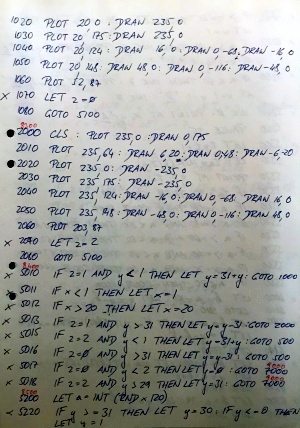 1020 PLOT 20,0 : DRAW 235,0
1030 PLOT 20,175 : DRAW 235,0
1040 PLOT 20,124 : DRAW 16,0 : DRAW 0,-68 : DRAW -16,0
1050 PLOT 20,148 : DRAW 48,0 : DRAW 0,-116 : DRAW -48,0
1060 PLOT 52,87
× 1070 LET z=0
1080 GOTO 5100
2000 CLS : PLOT 235,0 : DRAW 0,175
2010 PLOT 235,64 : DRAW 6,20 : DRAW 0,48 : DRAW -6,20
2020 PLOT 235,0 : DRAW -235,0
2030 PLOT 235,175 : DRAW -235,0
2040 PLOT 235,124 : DRAW -16,0 : DRAW 0,-68 : DRAW 16,0
2050 PLOT 235,148 : DRAW -48,0 : DRAW 0,-116 : DRAW 48,0
2060 PLOT 203,87
× LET z=2
GOTO 5100
× 5010 IF z=1 AND y<1 THEN LET y=31+y : GOTO 1000
5011 IF x<1 THEN LET x=1
× 5012 IF x>20 THEN LET x=20
× 5013 IF z=1 AND y>31 THEN LET y=y-31 : GOTO 2000
× 5015 IF z=2 AND y<1 THEN LET y=31+y : GOTO 500
× 5016 IF z=0 AND y>31 THEN LET y=y-31 : GOTO 500
× 5017 IF z=0 AND y<2 THEN LET y=0 : GOTO 7000
× 5018 IF z=2 AND y>29 THEN LET y=31 : GOTO 7000
5200 LET a=INT (RND × 120)
× 5220 IF y>=31 THEN LET y=30 : IF y<=0 THEN
LET y=1